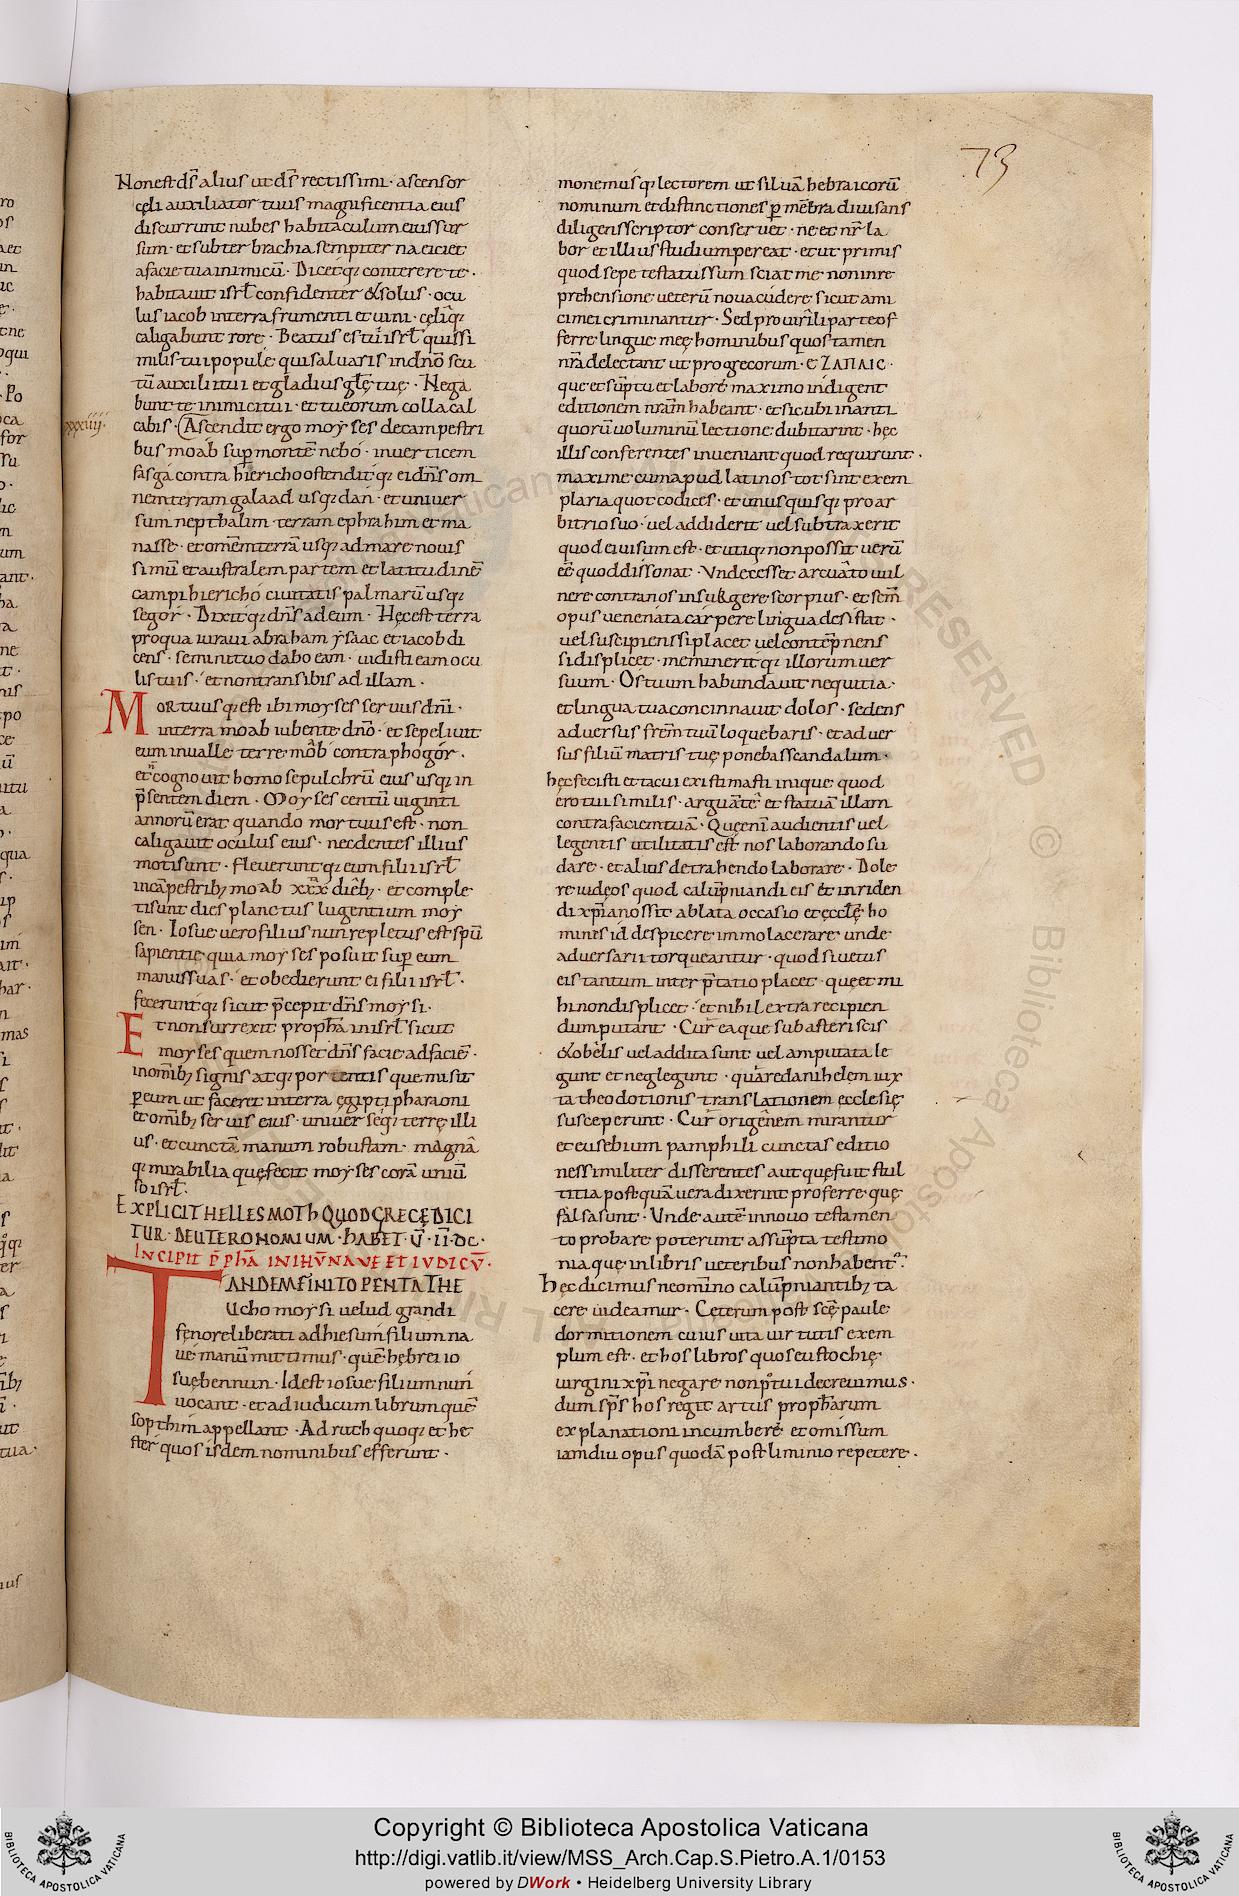 73
Non est ds̄ alius ut ds̄ rectissimi · ascensor
cęli auxiliator tuus magnificentia eius
discurrunt nubes habitaculum eius sur
sum · et subter brachia sempiterna eiciet
a facie tua inimicū · Dicetq; conterere te ·
habitavit isrl̄ confidenter & solus · ocu
lus iacob in terra frumenti et uini · cęliq;
caligabunt rore · Beatus es tu isrl̄ quis si
milis tui popule qui saluaris in dn̄o scu
tū auxilii tui et gladius glę̄ tuę · Nega
bunt te inimici tui · et tu eorum colla cal
xxxiiii·
cabis · Ascendit ergo moyses de campestri
bus moab sup̄ montē nebo · in uerticem
fasga contra hiericho ostenditq; ei dn̄s om
nem terram galaad usq; dan · et uniuer
sum nepthalim · terram ephrahim et ma
nasse · et om̄em terrā usq; ad mare nouis
simū et australem partem et latitudinē
campi hiericho ciuitatis palmarū usq;
segor · Dixitq; dn̄s ad eum · Hęc est terra
pro qua iuraui abraham ysaac et iacob di
cens · semini tuo dabo eam · uidisti eam ocu
lis tuis · et non transibis ad illam ·
Mortuus q; est ibi moyses seruus dn̄i ·
in terra moab iubente dn̄o · et sepeliuit
eum in ualle terre moab contra phogor ·
et n̄ cognouit homo sepulchrū eius usq; in
p̄sentem diem · Moyses centū uiginti
annorū erat quando mortuus est · non
caligauit oculus eius · nec dentes illius
moti sunt · Fleueruntq; eum filii isrl̄
in cāpestrib; moab xxx dieb; · et comple
ti sunt dies planctus lugentium moy
sen · Iosue uero filius nun repletus est sp̄u
sapientie quia moyses posuit sup̄ eum
manus suas · et obedierunt ei filii isrl̄ ·
feceruntq; sicut p̄cepit dn̄s moysi ·
Et non surrexit proph̄a in isrl̄ sicut
moyses quem nosset dn̄s facie ad faciē ·
in om̄ib; signis atq; portentis que misit
p̄ eum ut faceret in terra ęgipti pharaoni
et om̄ib; seruis eius · uniuerseq; terrę illi
us · et cunctā manum robustam · magnā
q; mirabilia quę fecit moyses corā uniū
so isrl̄ ·
EXPLICIT HELLESMOTh QUOD GRECĘ DICI
TUR · DEUTERONOMIUM · hABET · V̄ · II · DC ·
INCIPIT P̄PhĀ IN IHV̄ NAVE ET IVDICV̄ ·
TANDEM FINITO PENTATHE
Ucho moysi uelud grandi
fęnore liberati ad hiesum filium na
ue manū mittimus · quē hębrei io
suę bennun · Id est iosue filium nun
uocant · et ad iudicum librum quē
sopthim appellant · Ad ruth quoq; et he
ster quos isdem nominibus efferunt ·
monemusq; lectorem ut siluā hebraicorū
nominum et distinctiones p̄ mēbra diuisas
diligens scriptor conseruet · ne et nr̄ la
bor et illius studium pereat · et ut primis
quod sepe testatus sum sciat me non in re
prehensione ueterū noua cudere sicut ami
ci mei criminantur · Sed pro uirili parte of
ferre lingue meę hominibus quos tamen
nrā delectant ut pro grecorum · ΕΖΑΠΛΙC ·
que et sūptu et laborē maximo indigent
editionem nram̄ habeant · et sicubi in anti
quorū uoluminū lectione dubitarint · hęc
illis conferentes inueniant quod requirunt ·
maxime cum apud latinos tot sint exem
plaria quot codices · et unusquisq; pro ar
bitrio suo · uel addiderit uel subtraxerit
quod ei uisum est · et utiq; non possit uerū
eē quod dissonat · Vnde cesset arcuato uul
nere contra nos insu&gere scorpius · et scm̄
opus uenenata carpere lingua desistat ·
uel suscipiens si placet uel contēpnens
si displicet · memineritq; illorum uer
suum · Os tuum habundauit nequitia ·
et lingua tua concinnauit dolos · sedens
aduersus frem̄ tuū loquebaris · et aduer
sus filiū matris tuę ponebas scandalum ·
hęc fecisti et tacui existimasti inique quod
ero tui similis · arguā te et statuā illam
contra faciem tuā · Quę enī audientis uel
legentis utilitatis est nos laborando su
dare · et alius detrahendo laborare · Dole
re iudęos quod calūpniandi eis et inriden
di xp̄ianos sit ablata occasio et ęcclę̄ ho
mines id despicere immo lacerare unde
aduersarii torqueantur · quod si uetus
eis tantum interp̄tatio placet · quę et mi
hi non displicet · et nihil extra recipien
dum putant · Cur ea que sub asteriscis
& obelis uel addita sunt uel amputata le
gunt et neglegunt · quare danihelem iux
ta theodotionis translationem ecclesię
susceperunt · Cur origēnem mirantur
et eusebium pamphili cunctas editio
nes similiter disserentes aut quę fuit stul
titia postquā uera dixerint proferre quę
falsa sunt · Vnde autē in nouo testamen
to probare poterunt assūpta testimo
nia que in libris ueteribus non habent ·
hęc dicimus ne om̄ino calūpniantib; ta
cere uideamur · Cęterum post scē paule
dormitionem cuius uita uirtutis exem
plum est · et hos libros quos eustochię
uirgini xp̄i negare non potui decreuimus ·
dum sp̄s hos regit artus proph̄arum
explanationi incumbere et omissum
iamdiu opus quodā postliminio repetere ·
Copyright © Biblioteca Apostolica Vaticana
http://digi.vatlib.it/view/MSS_Arch.Cap.S.Pietro.A.1/0153
powered by DWork • Heidelberg University Library